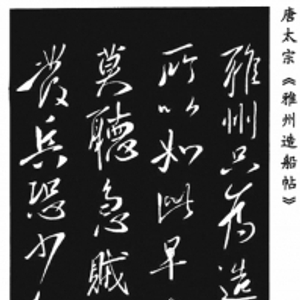 唐太宗《雅州造船帖》
雅州只为造
所以如此早
莫聽急贼
發兵恐少